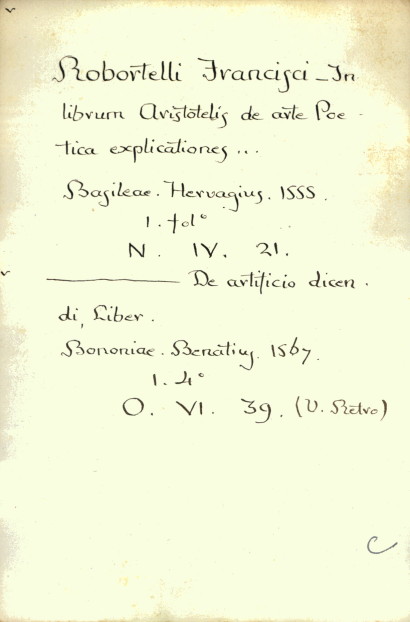 Robortelli Francisci _ In
librum Aristotelis de arte Poe-
tica explicationes...
Basileae. Hervagius. 1555.
1. fol°
N. IV. 21.
——— De artificio dicen.
di, Liber.
Bononiae. Benatius. 1567.
1. 4°
O. VI. 39. (V. Retro)
C